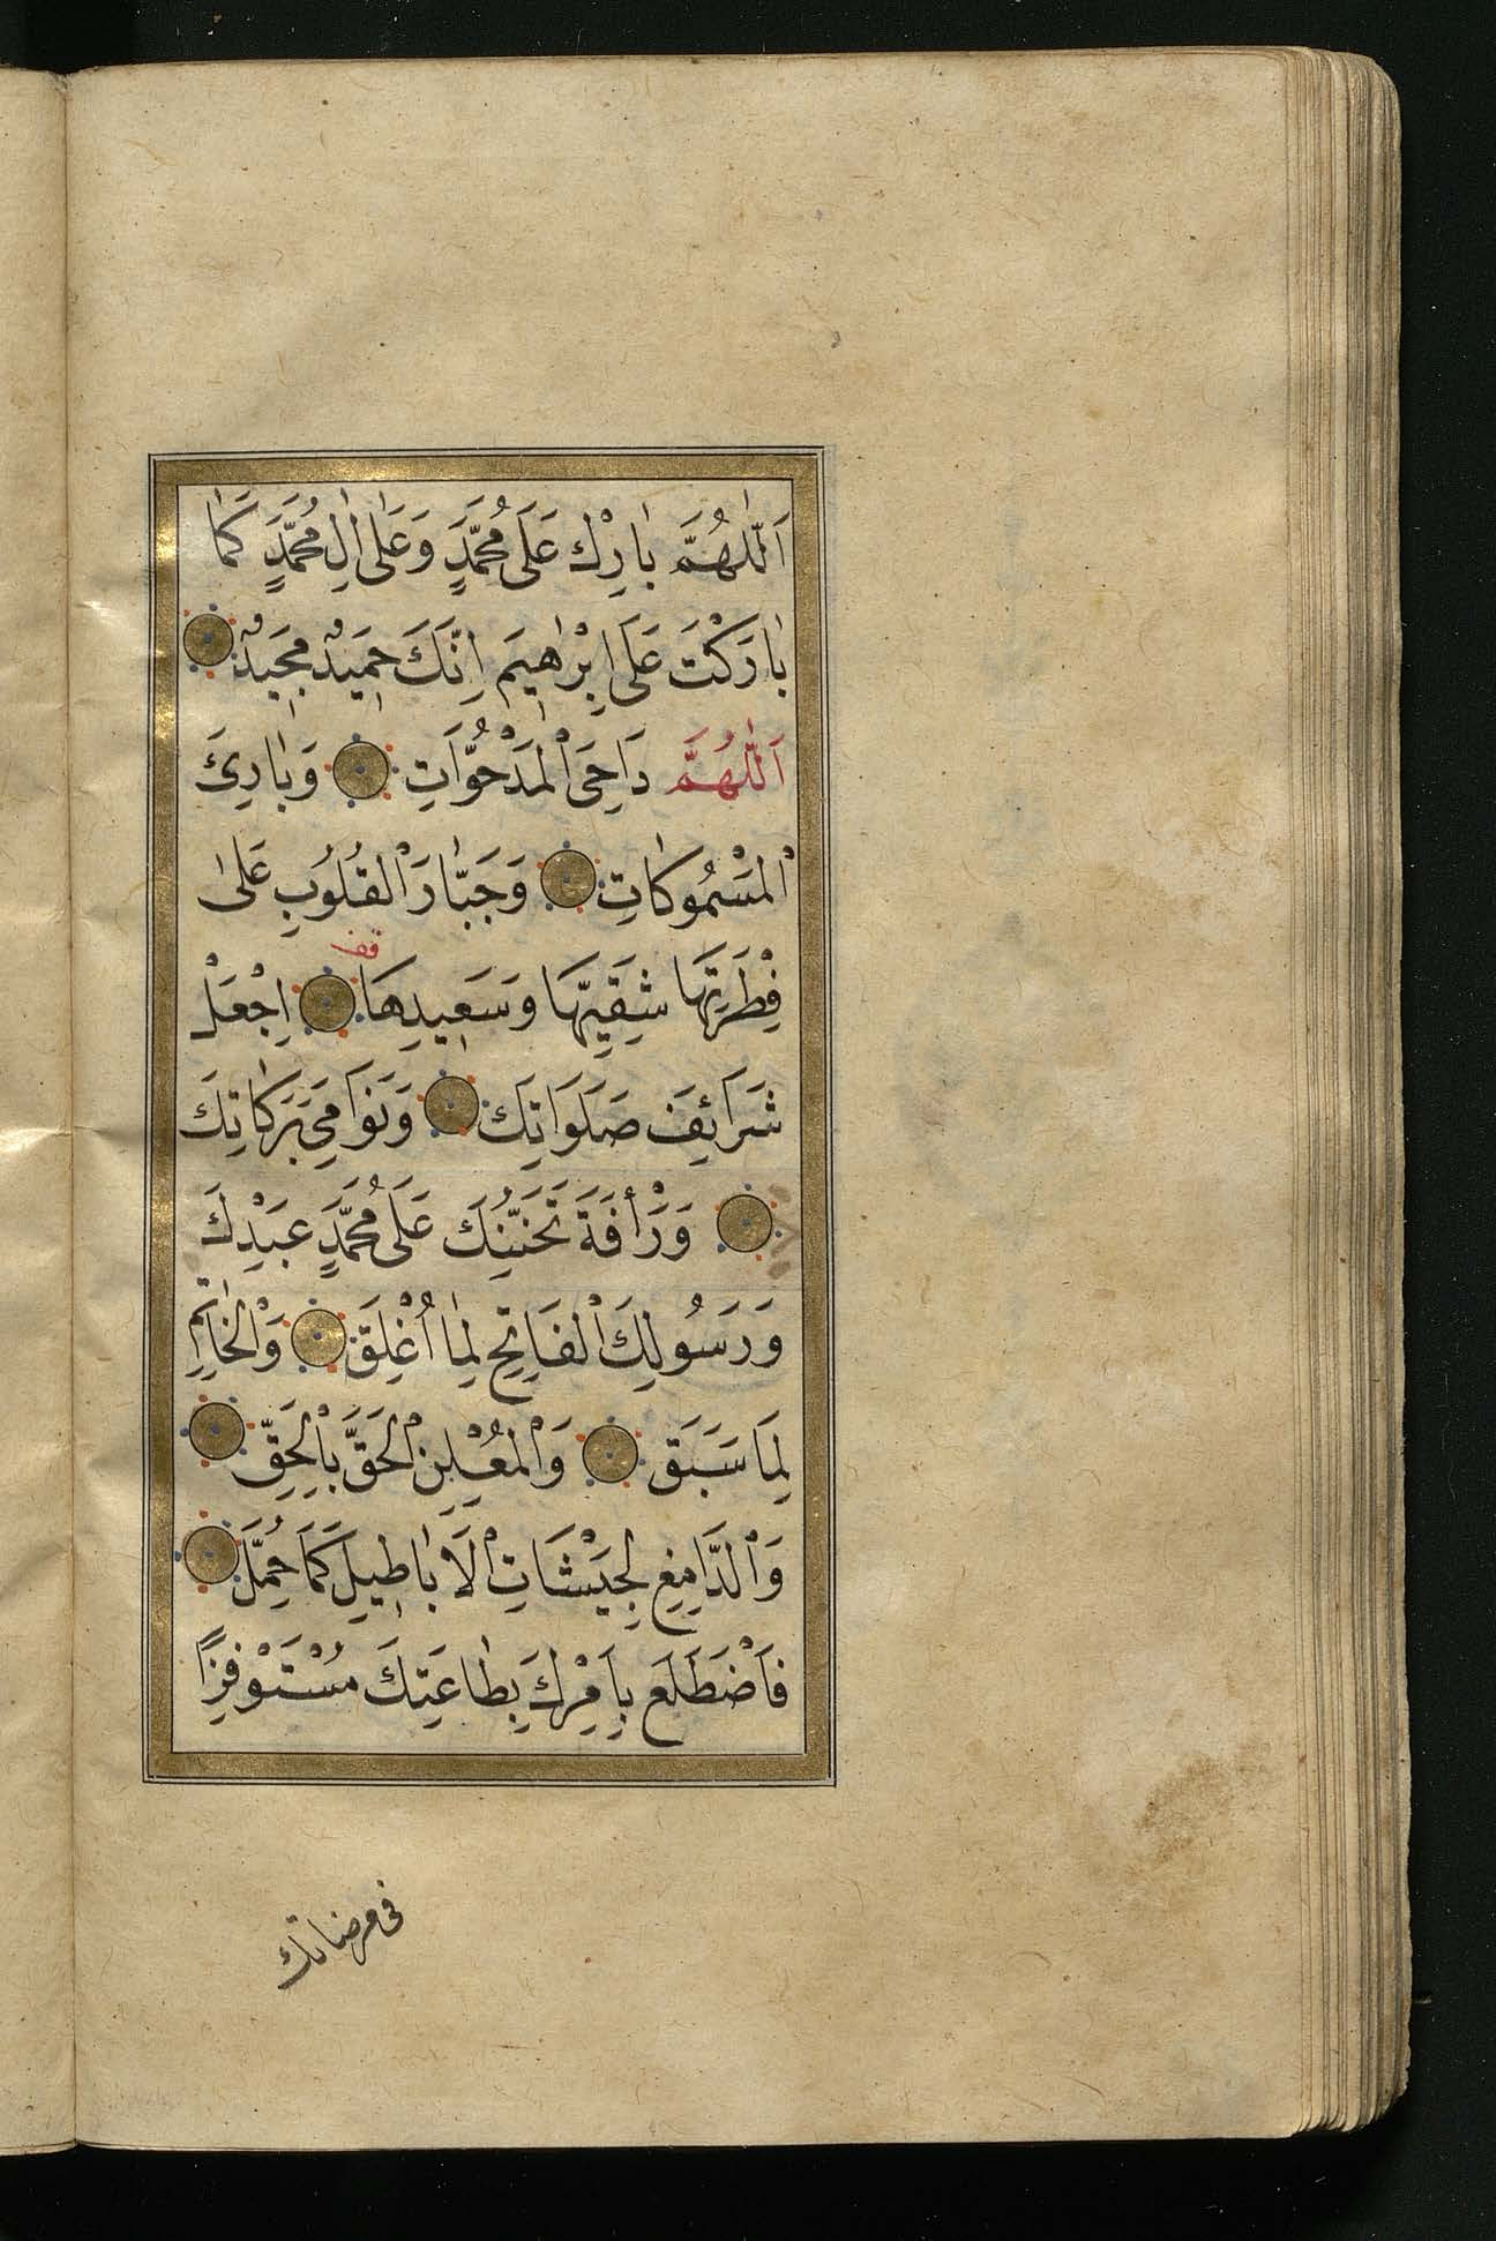 اَللّٰهُمَّ بٰارِكْ عَلَى مُحَمَّدٍ وَعَلٰى اٰلِ مُحَمَّدٍ كَمٰا
بٰارَكْتَ عَلَى اِبْرٰاهِيمَ اِنَّكَ حَمِيدٌ مَجِيدٌ
اَللّٰهُمَّ دَاحِيَ الْمَدْحُوَّاتِ وَبٰارِئَ
الْمَسْمُوكٰاتِ وَجَبّٰارَ الْقُلُوبِ عَلٰى
قف
فِطْرَتِهَا شَقِيِّهَا وَسَعِيدِهَا اِجْعَلْ
شَرَائِفَ صَلَوَاتِكَ وَنَوَامِيَ بَرَكَاتِكَ
وَرَأْفَةَ تَحَنُّنِكَ عَلَى مُحَمَّدٍ عَبْدِكَ
وَرَسُولِكَ الْفَاتِحِ لِمٰا اُغْلِقَ وَالْخٰاتِمِ
لِمَا سَبَقَ وَالْمُعْلِنِ الْحَقَّ بِالْحَقِّ
وَالدَّامِغِ لِجَيْشَاتِ الْاَبٰاطِيلِ كَمَا حُمِّلَ
فَاضْطَلَعَ بِاَمْرِكَ بِطٰاعَتِكَ مُسْتَوْفِزًا
فى مرضاتك